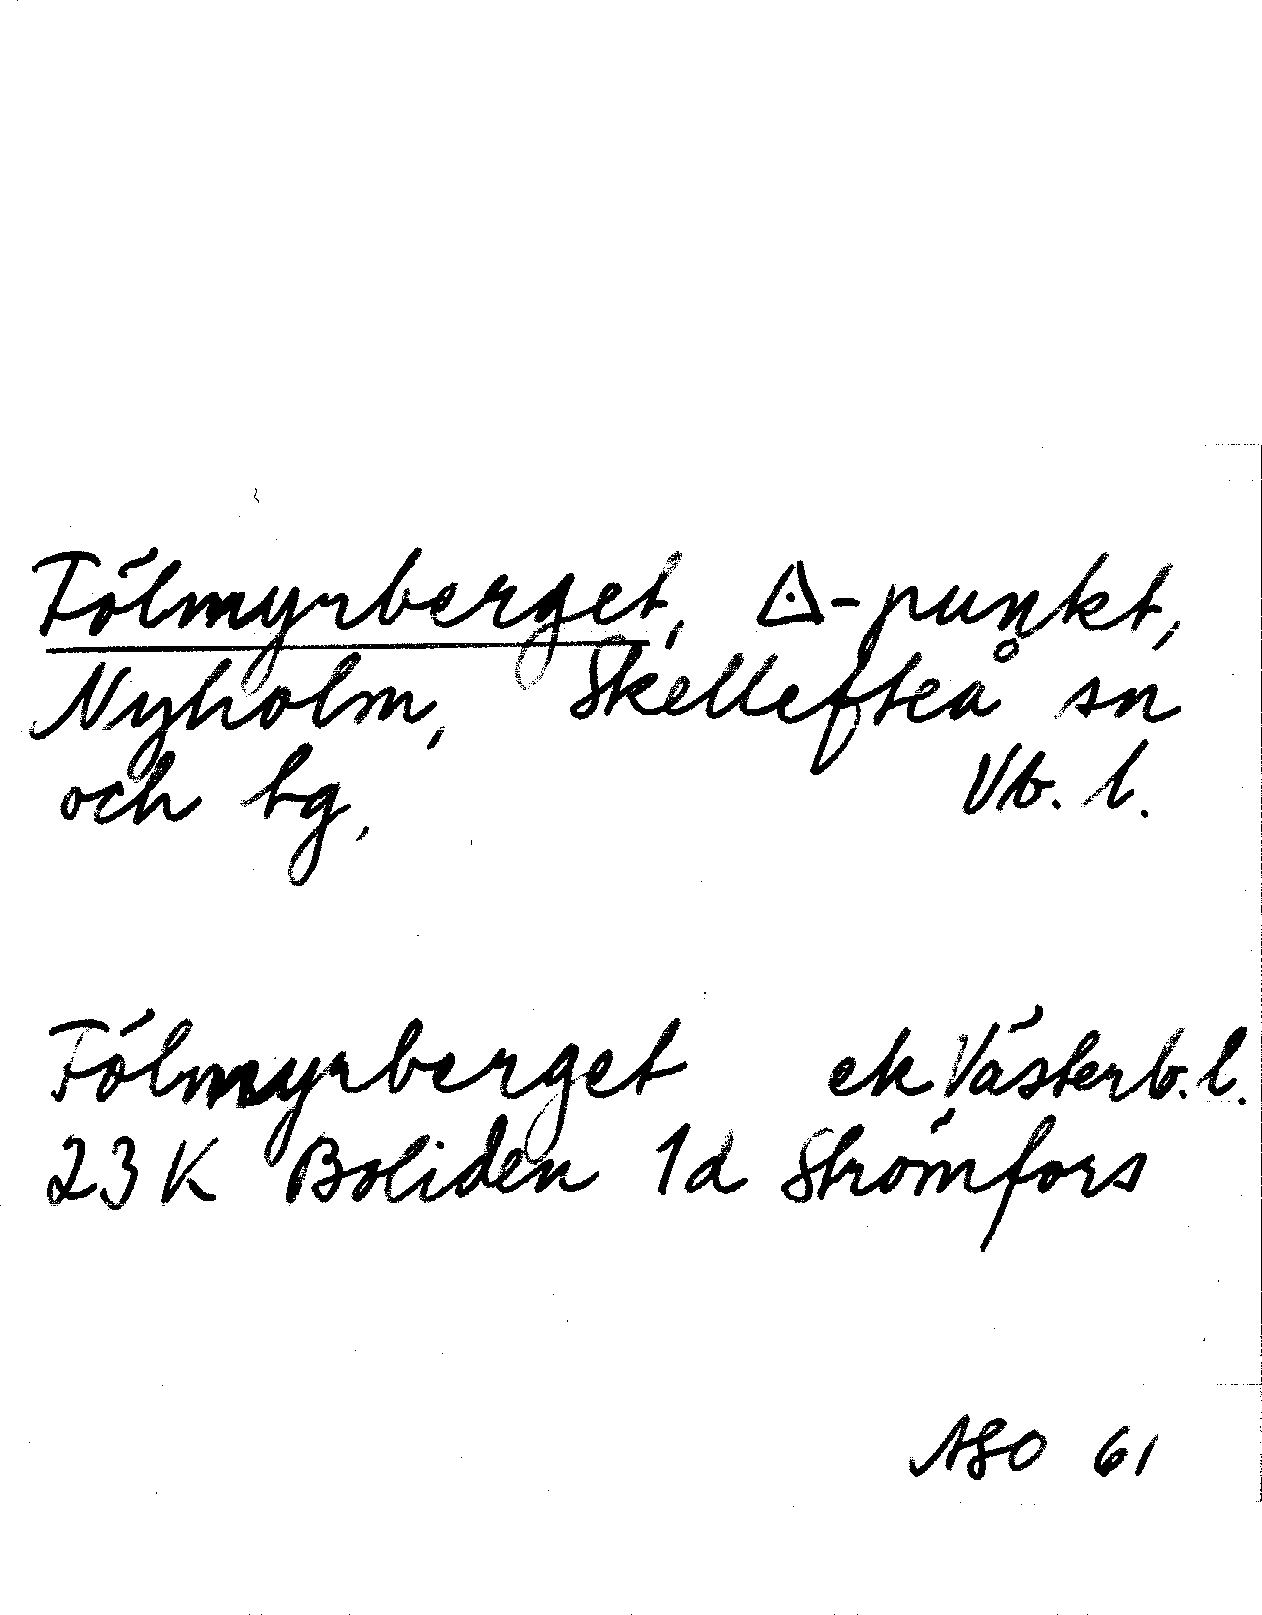 Fölmyrberget, △-punkt,
Nyholm, Skellefteå sn
och tg, Vb. l.
Fölmyrberget ek Västerb. l.
23 K Boliden 1d Strömfors
ASO 61